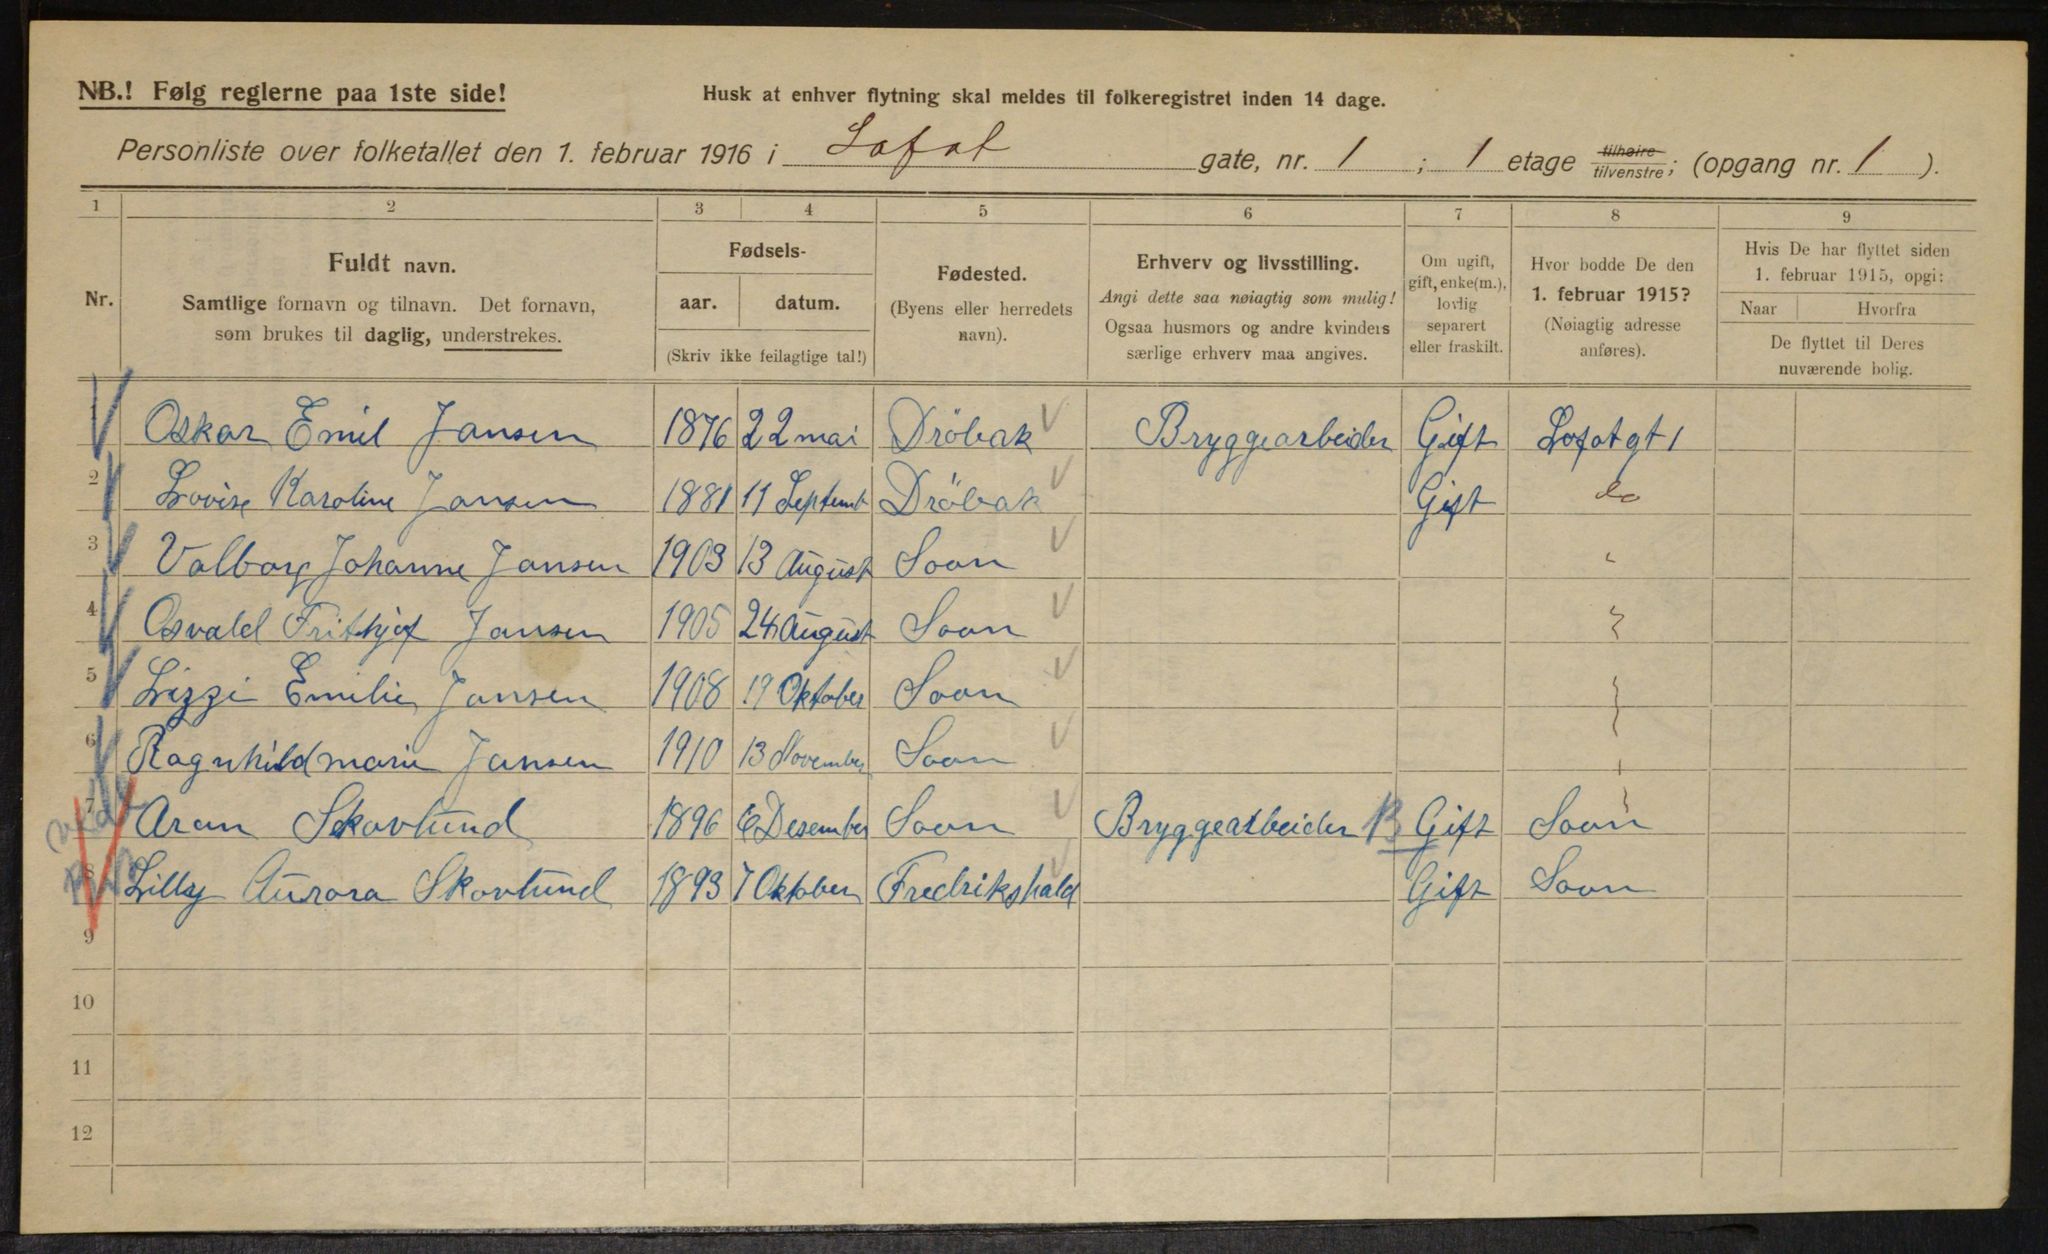 NB.! Følg reglerne paa 1ste side!
Husk at enhver flytning skal meldes til folkeregistret inden 14 dage.
Personliste over folketallet den 1. februar 1916 i Lofot gate, nr. 1 ; 1 etage tilhøire/tilvenstre; (opgang nr. 1 ).
1 2 3 4 5 6 7 8 9
Nr.
Fuldt navn.
Samtlige fornavn og tilnavn. Det fornavn,
som brukes til daglig, understrekes.
Fødsels-
aar. datum.
(Skriv ikke feilagtige tal!)
Fødested.
(Byens eller herredets
navn).
Erhverv og livsstilling.
Angi dette saa nøiagtig som mulig!
Ogsaa husmors og andre kvinders
særlige erhverv maa angives.
Om ugift,
gift, enke(m.),
lovlig
separert
eller fraskilt.
Hvor bodde De den
1. februar 1915?
(Nøiagtig adresse
anføres).
Hvis De har flyttet siden
1. februar 1915, opgi:
Naar Hvorfra
De flyttet til Deres
nuværende bolig.
1 Oskar Emil Jansen 1876 22 mai Dröbak Bryggearbeider Gift Lofotgt 1
2 Lovise Karoline Jansen 1881 11 Septemb Dröbak Gift do
3 Valborg Johanne Jansen 1903 13 August Soon "
4 Osvald Frithjof Jansen 1905 24 August Soon
5 Lizzi Emilie Jansen 1908 19 Oktober Soon
6 Ragnhild marie Jansen 1910 13 November Soon
7 Aran Skovlund 1896 6 Desember Soon Bryggearbeider B Gift Soon
8 Lilly Aurora Skovlund 1893 7 Oktober Fredrikshald Gift Soon
9
10
11
12